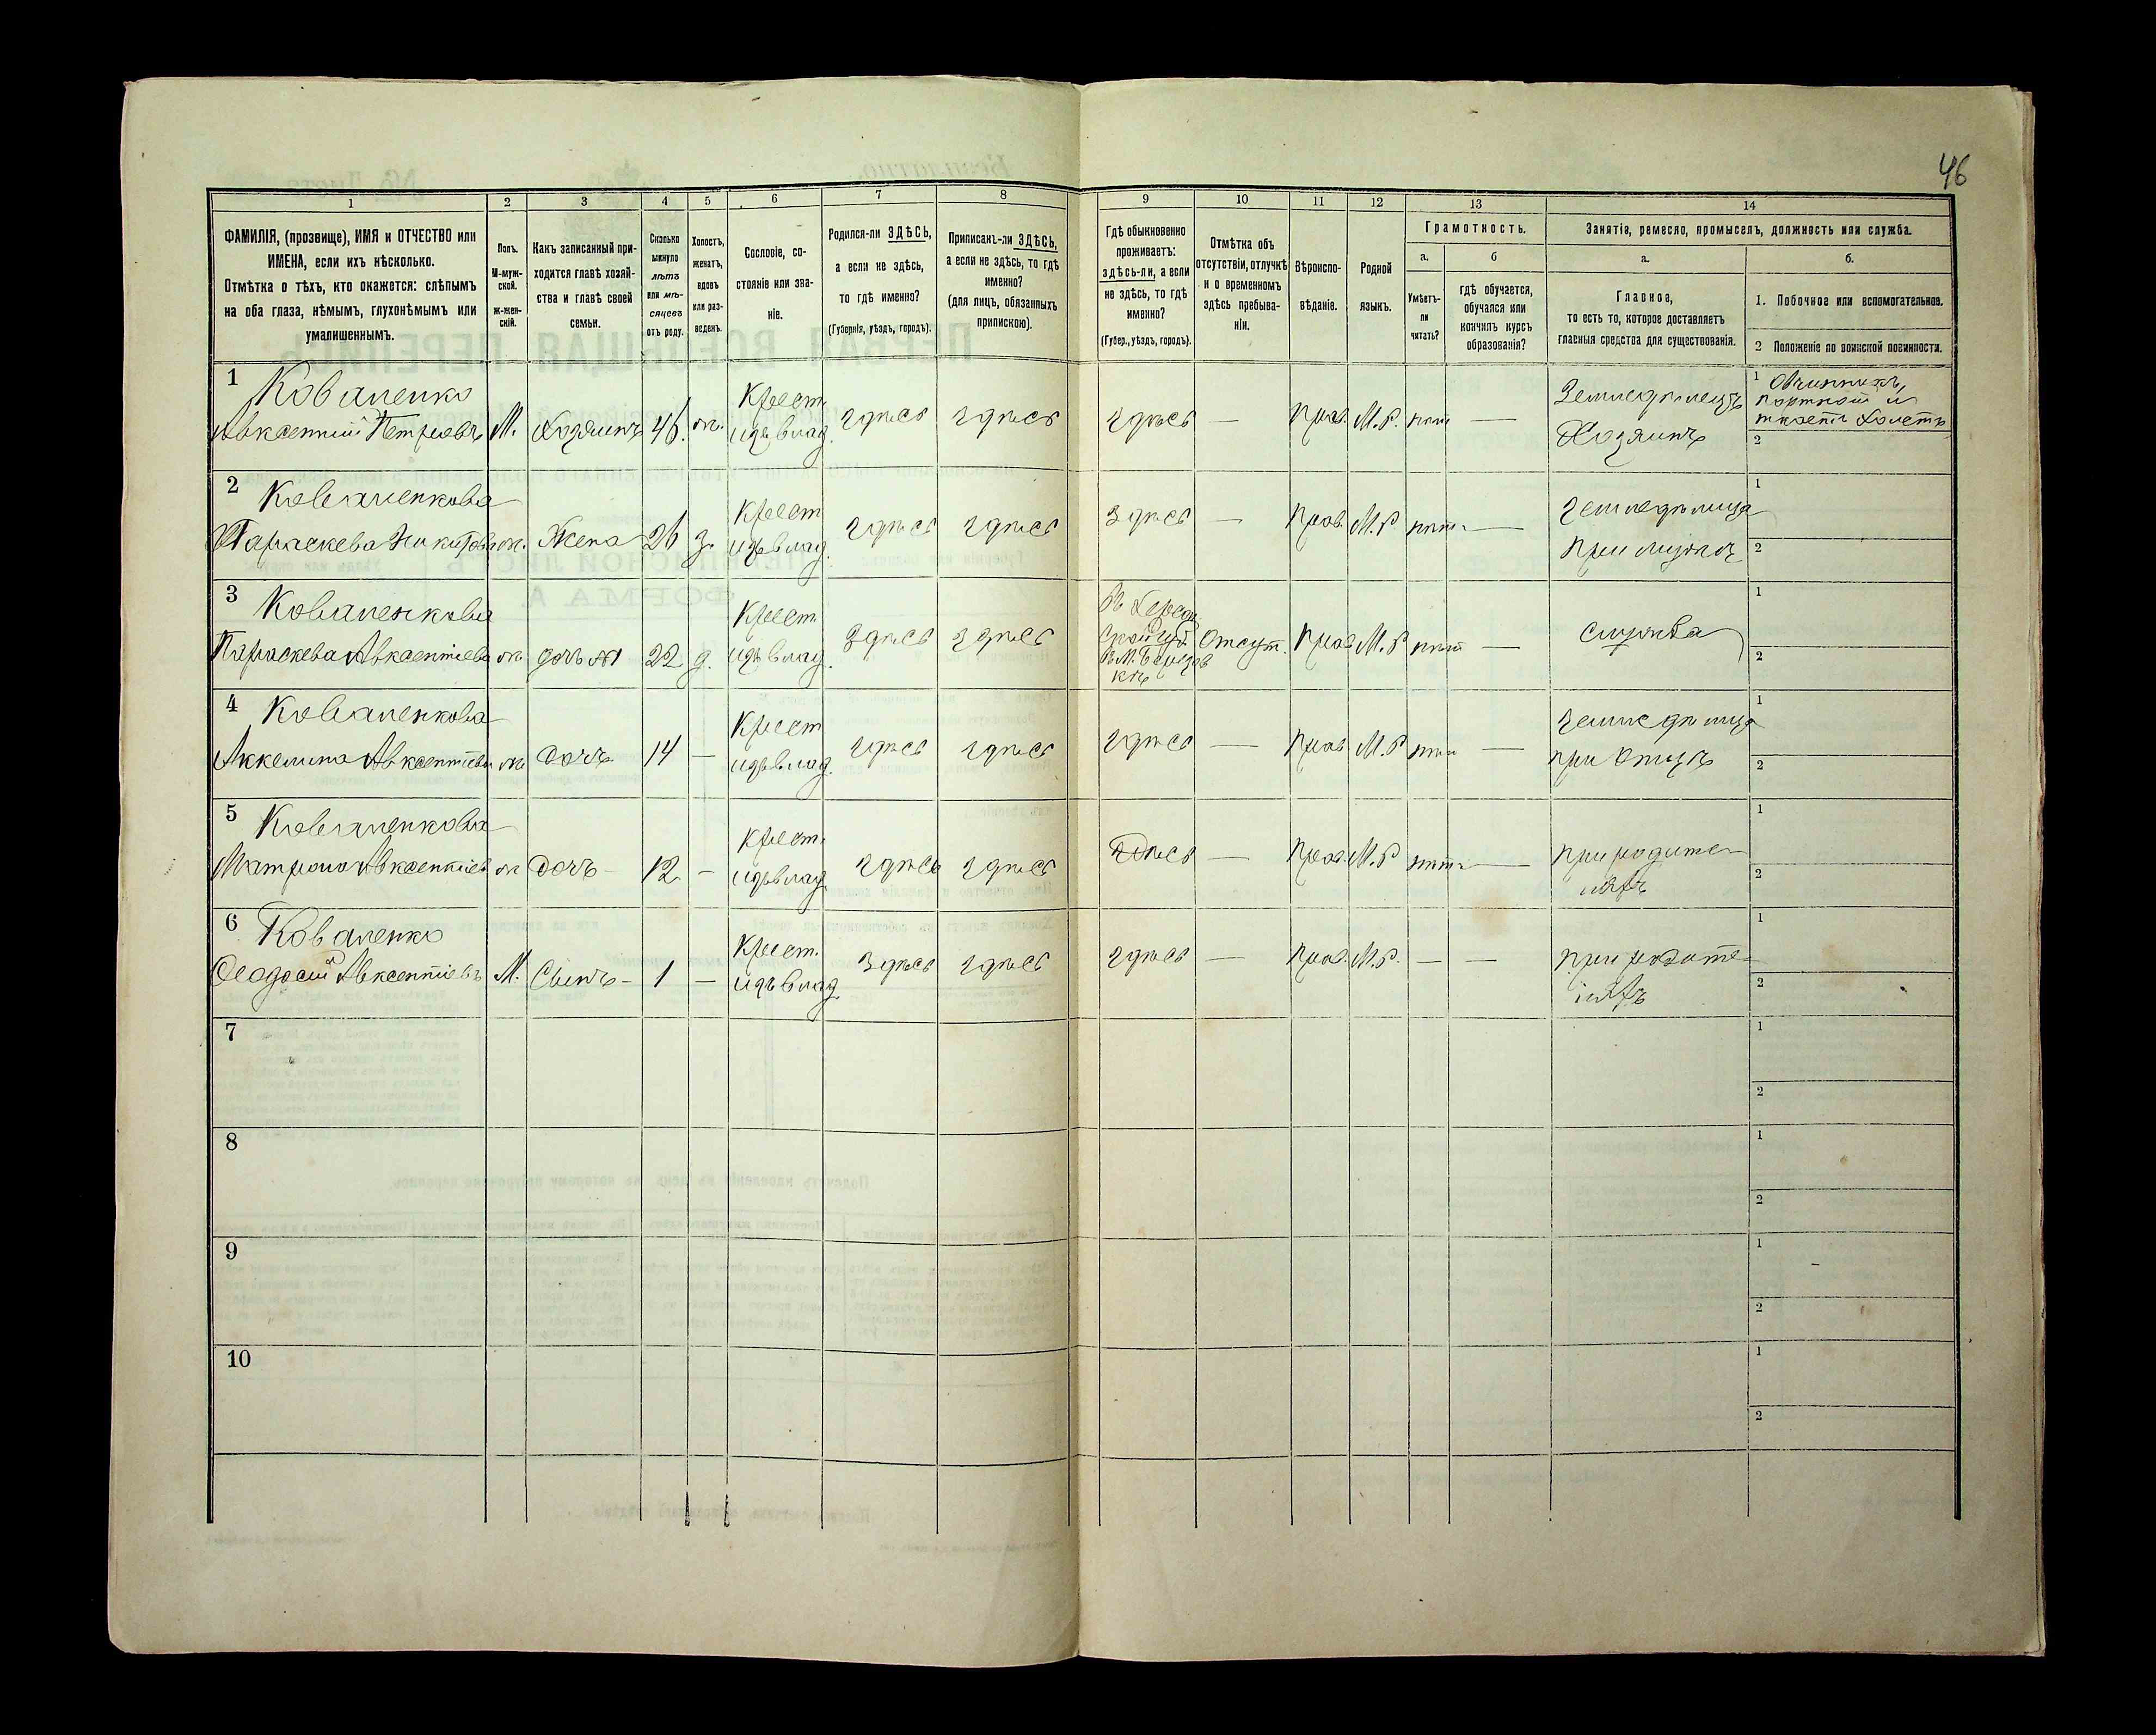 46
1 2 3 4 5 6 7 8 9 10 11 12 13 14
ФАМИЛІЯ, (прозвище), ИМЯ и ОТЧЕСТВО или
ИМЕНА, если ихъ нѣсколько.
Отмѣтка о тѣхъ, кто окажется: слѣпымъ
на оба глаза, нѣмымъ, глухонѣмымъ или
умалишеннымъ.
Полъ.
М-муж-
ской.
ж-жен-
скій.
Какъ записанный при-
ходится главѣ хозяй-
ства и главѣ своей
семьи.
Сколько
минуло
лѣтъ
или мѣ-
сяцевъ
отъ роду.
Холостъ,
женатъ,
вдовъ
или раз-
веденъ.
Сословіе, со-
стояніе или зва-
ніе.
Родился-ли ЗДѢСЬ,
а если не здѣсь,
то гдѣ именно?
(Губернія, уѣздъ, городъ).
Приписанъ-ли ЗДѢСЬ,
а если не здѣсь, то гдѣ
именно?
(для лицъ, обязанныхъ
припискою).
Гдѣ обыкновенно
проживаетъ:
здѣсь-ли, а если
не здѣсь, то гдѣ
именно?
(Губер., уѣздъ, городъ).
Отмѣтка объ
отсутствіи, отлучкѣ
и о временномъ
здѣсь пребыва-
ніи.
Вѣроиспо-
вѣданіе.
Родной
языкъ.
Грамотность.
а.
Умѣетъ-
ли
читать?
б
гдѣ обучается,
обучался или
кончилъ курсъ
образованія?
Занятія, ремесло, промыселъ, должность или служба.
а.
Главное,
то есть то, которое доставляетъ
главныя средства для существованія.
б.
1. Побочное или вспомогательное.
2 Положеніе по воинской повинности.
1 Коваленко
Авксентій Петровъ М. Хозяинъ 46. ж. Крест. издѣвлад. здѣсь здѣсь здѣсь — Прав. М.Р. нѣт — Земледѣлецъ
Хозяинъ
1 Овчинникъ,
портной и
ткетъ холстъ
2
2 Коваленкова
Параскева Никитова ж. Жена 26 з. Крест здѣсь здѣсь здѣсь — Прав. М.Р нѣт — Земледѣлица
при мужѣ
1
2
3 Коваленкова
Параскева Авксентіева ж. дочь 22 д. Крест здѣсь здѣсь Отсут. Прав М.Р нѣт — служба
1
2
4 Коваленкова
Аккелина Авксентіева ж дочь 14 — Крест здѣсь здѣсь здѣсь — Прав. М.Р нѣт — земледѣлица
при Отцѣ
1
2
5 Коваленкова
Матрона Авксентіев ж дочь — 12 — Крест. здѣсь здѣсь здѣсь — Прав. М.Р нѣт — при родите-
ляхъ
1
2
6 Коваленко
Феодосій Авксентіевъ М. Сынъ — 1 — Крест. здѣсь здѣсь здѣсь — Прав. М.Р. — — при родите-
ляхъ
1
2
7
1
2
8
1
2
9
1
2
10
1
2